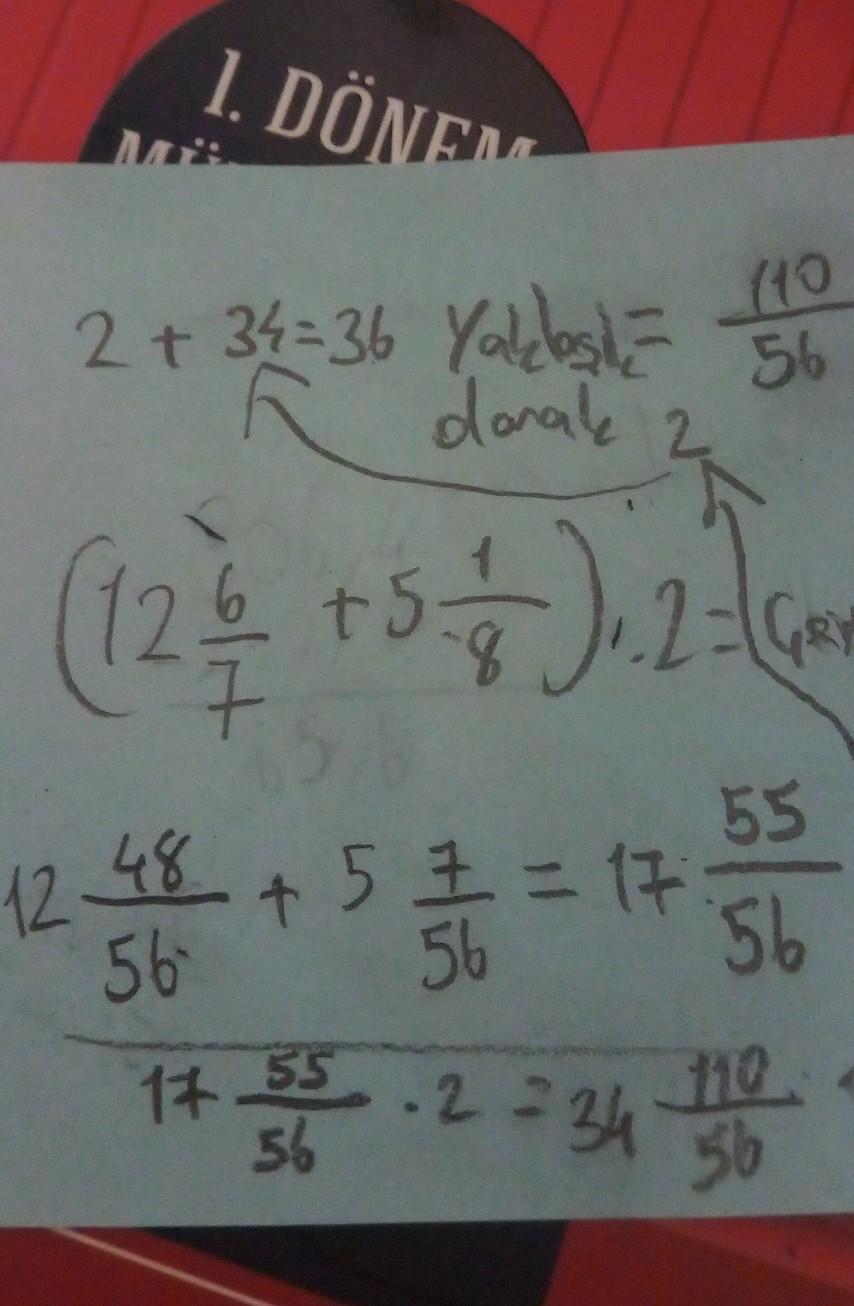 1. DÖNEM
2 + 34 = 36 Yaklaşık = 110/56
olarak 2
(12 6/7 + 5 1/8) . 2 =
12 48/56 + 5 7/56 = 17 55/56
17 55/56 . 2 = 34 110/56